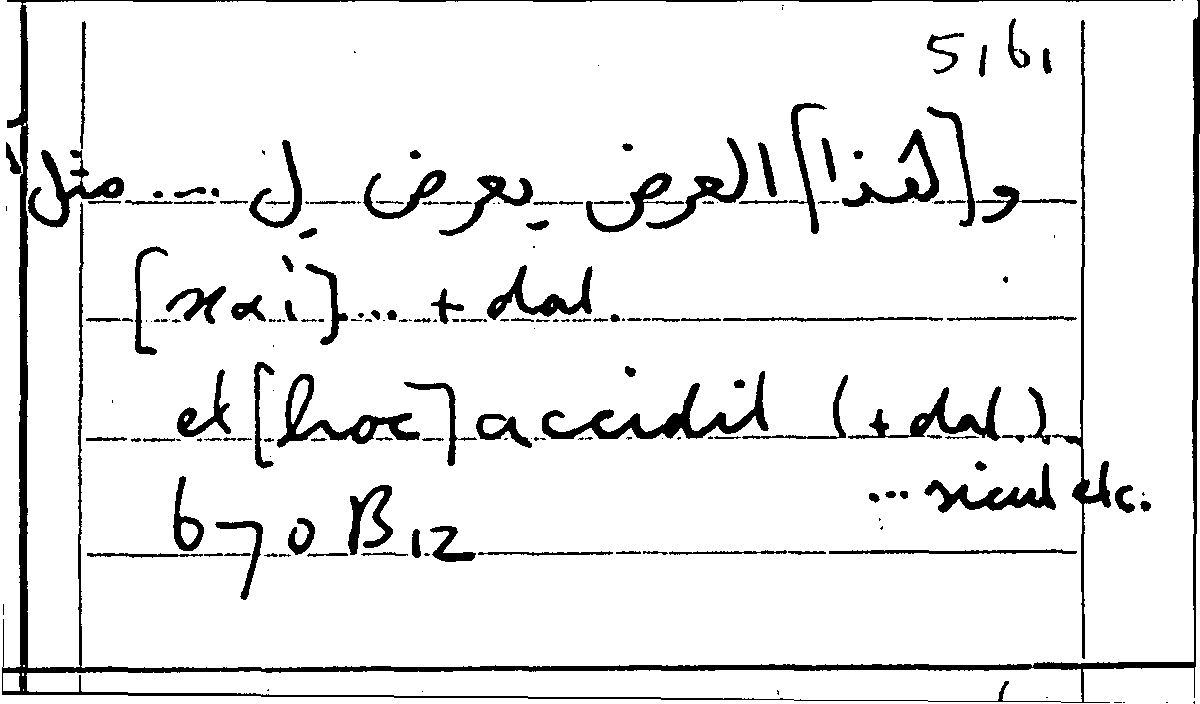 5,6,
و [لهذا] العرض يعرض لِ .... مثل
[καὶ] .... + dat.
et [hoc] accidit (+ dat.)
... sicut etc.
670 B12